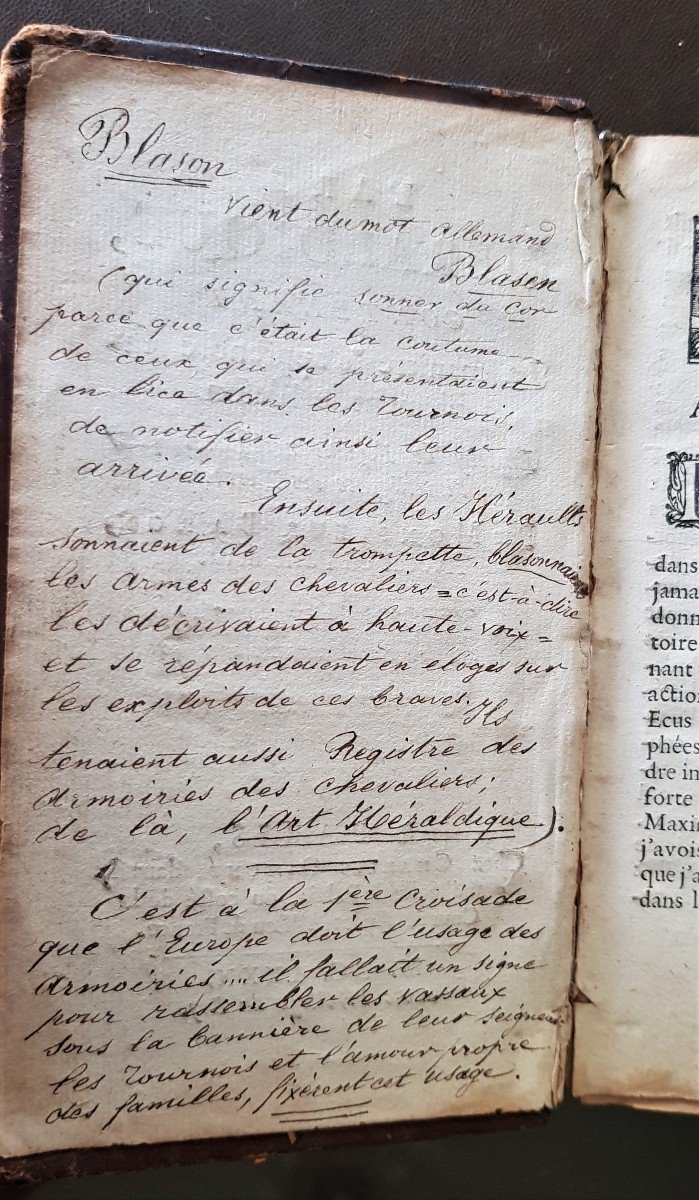 Blason
vient du mot allemand
Blasen
(qui signifie sonner du cor
parce que c'était la coutume
de ceux qui se présentaient
en lice dans les Tournois,
de notifier ainsi leur
arrivée.
Ensuite, les Héraults
sonnaient de la trompette, blasonnaient
les armes des chevaliers = c'est-à-dire
les décrivaient à haute-voix =
et se répandaient en éloges sur
les exploits de ces braves. Ils
tenaient aussi Registre des
armoiries des chevaliers;
de là, l'Art Héraldique).
C'est à la 1ère croisade
que l'Europe doit l'usage des
armoiries .... il fallait un signe
pour rassembler les vassaux
sous la bannière de leur seigneur
les Tournois et l'amour propre
des familles, fixèrent cet usage.
dans
jama
donn
toire
nant
actio
Ecus
phées
dre in
forte
Maxi
j'avois
que j'a
dans l